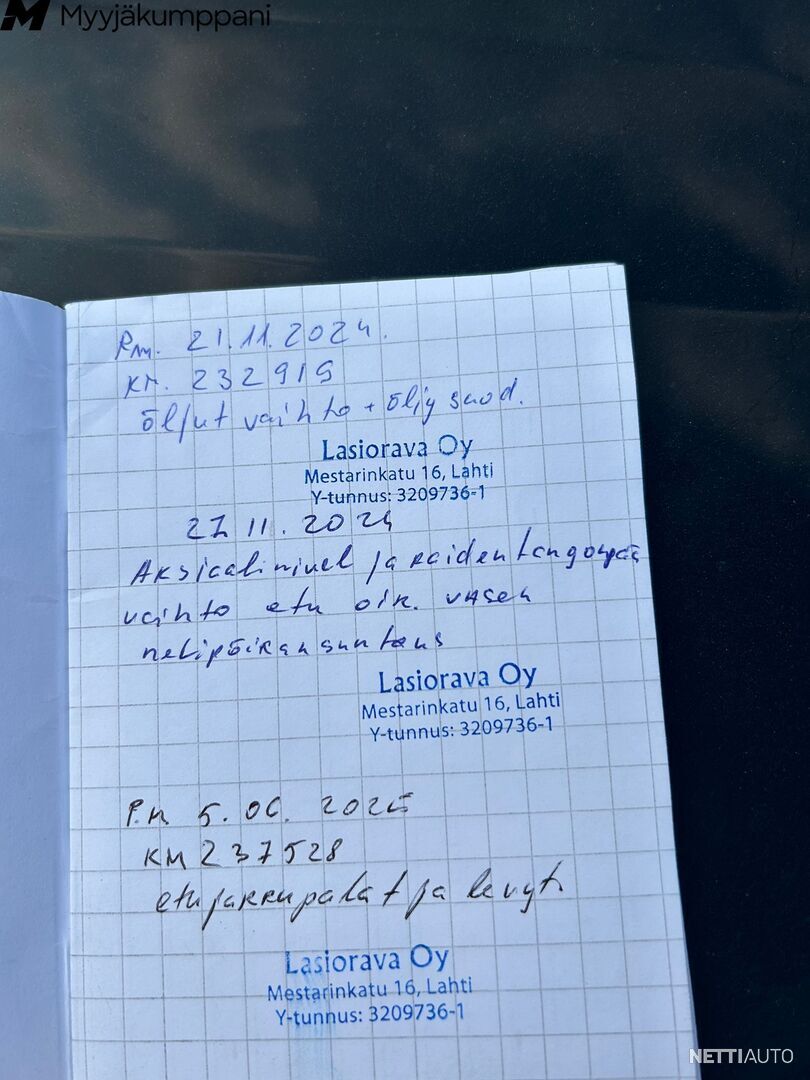 Myyjäkumppani
Pm. 21.11.2024.
KM. 232919
öljyt vaihto + öljy suod.
Lasiorava Oy
Mestarinkatu 16, Lahti
Y-tunnus: 3209736-1
27 11. 2024
Aksiaalinivel ja raidentangonpää
vaihto etu oik. vasen
nelipöiränsuntaus
Lasiorava Oy
Mestarinkatu 16, Lahti
Y-tunnus: 3209736-1
P.M 5.06. 2025
KM 237528
etujarrupalat ja levyt.
Lasiorava Oy
Mestarinkatu 16, Lahti
Y-tunnus: 3209736-1
NETTIAUTO